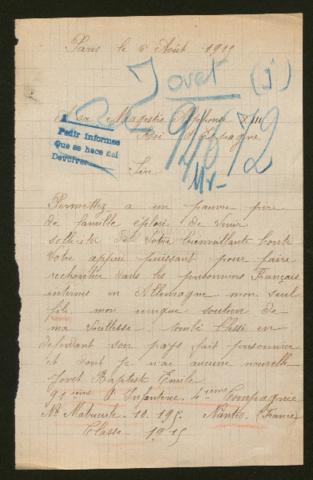 Paris le 6 Août 1915
Jovet (J)
A Sa Majesté Alphonse XIII
Roi d'Espagne
92672
Pedir informes
Que se hace así
Devolver
Sire
Mr
Permettez a un pauvre père
de famille éploré de venir
solliciter de Votre bienveillante bonté
Votre appui puissant pour faire
rechercher dans les prisonniers Français
internés en Allemagne mon seul
fils mon unique soutien de
ma vieillesse tombé blessé en
defendant son pays fait prisonnier
et dont je n'ai aucune nouvelle
Jovet Baptiste Emile
d'Infanterie 4ième Compagnie
No Matricule 10.195 Nantes (France)
Classe 1915